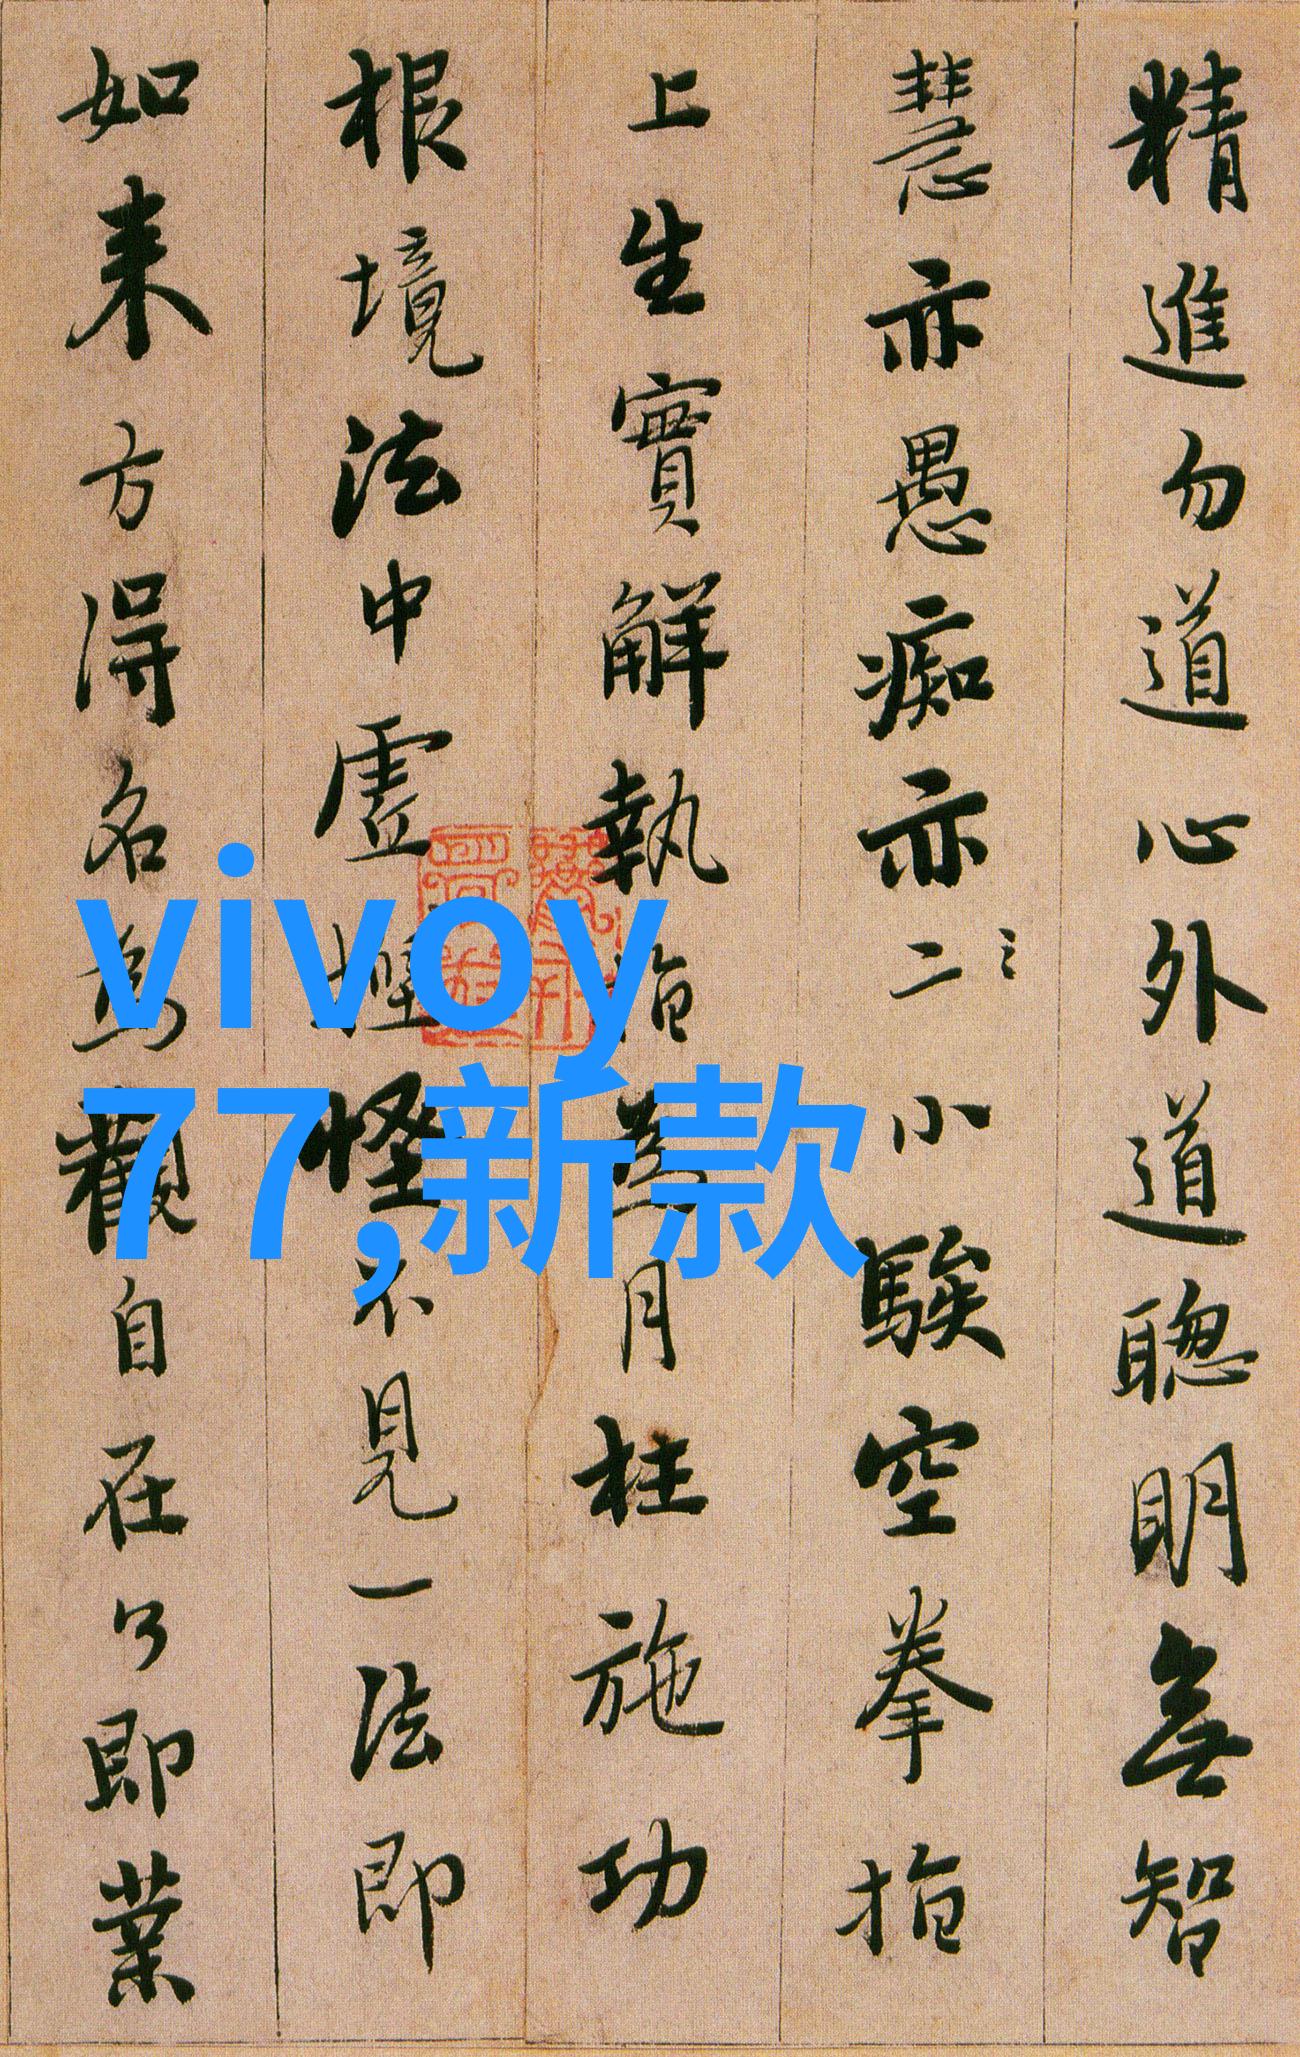 精進勿道心外道聰明無智
慧亦愚癡亦二小騃空拳指
上生實解執指為月枉施功
根境法中虛捏怪不見一法即
如来方得名為觀自在了即業
vivoy
77,新款